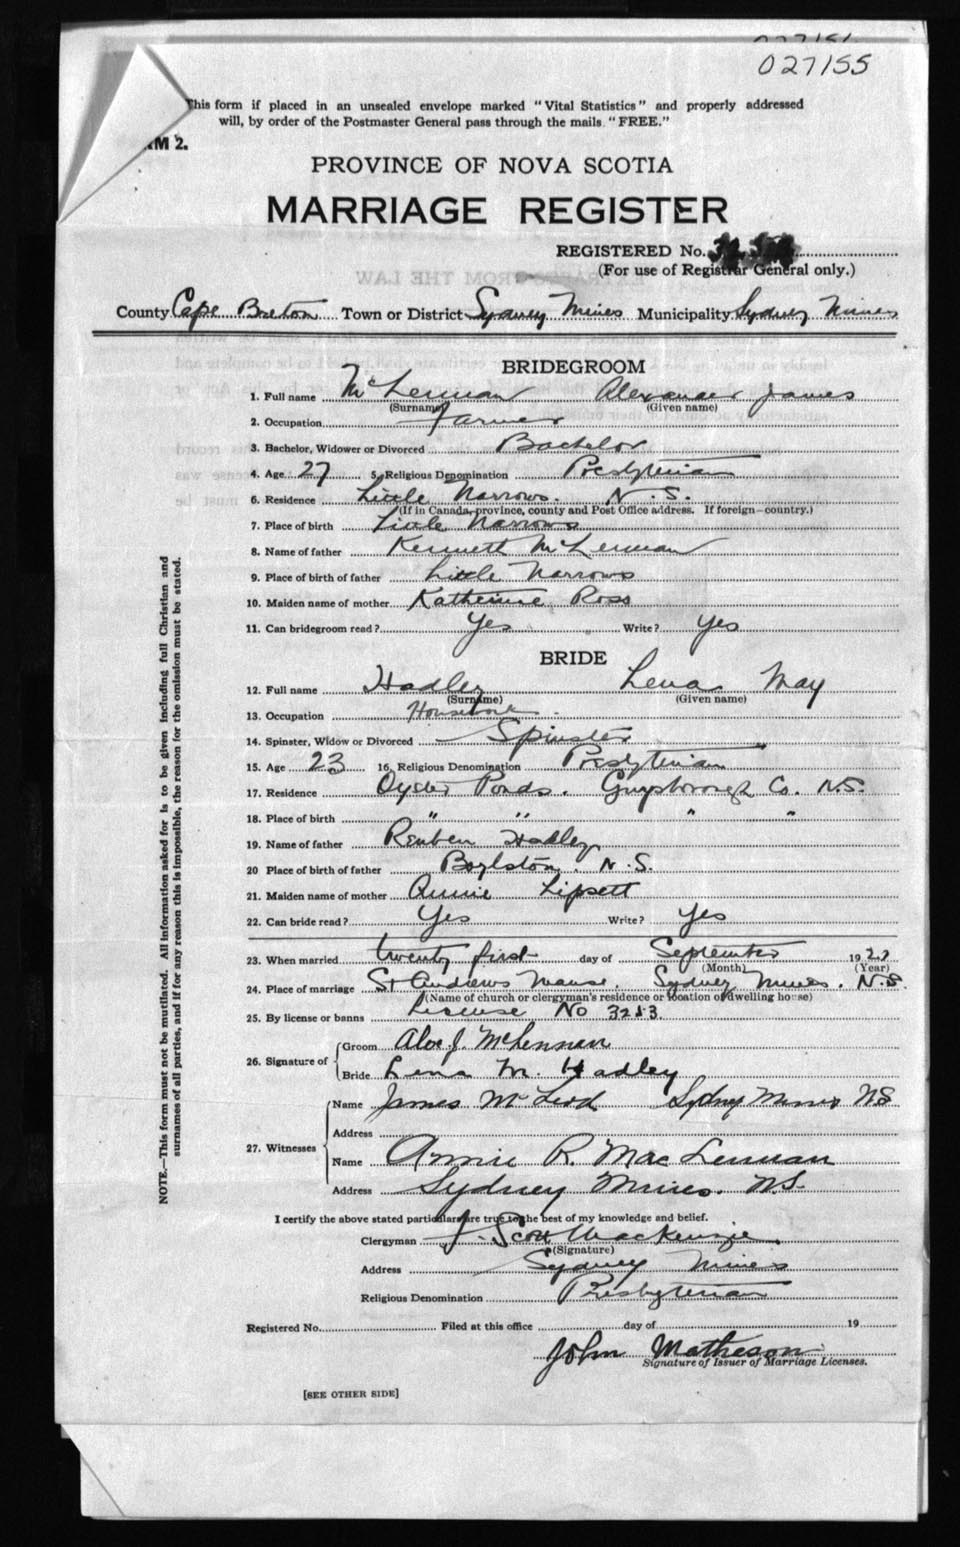 027155
This form if placed in an unsealed envelope marked "Vital Statistics" and properly addressed
will, by order of the Postmaster General pass through the mails "FREE."
RM 2.
PROVINCE OF NOVA SCOTIA
MARRIAGE REGISTER
REGISTERED No.
(For use of Registrar General only.)
County Cape Breton Town or District Sydney Mines Municipality Sydney Mines
BRIDEGROOM
1. Full name McLennan Alexander James
(Surname) (Given name)
2. Occupation Farmer
3. Bachelor, Widower or Divorced Bachelor
4. Age 27 5. Religious Denomination Presbyterian
6. Residence Little Narrows. N.S.
(If in Canada, province, county and Post Office address. If foreign—country.)
7. Place of birth Little Narrows
8. Name of father Kenneth McLennan
9. Place of birth of father Little Narrows
10. Maiden name of mother Katherine Ross
11. Can bridegroom read? Yes Write? Yes
BRIDE
12. Full name Hadley Lena May
(Surname) (Given name)
13. Occupation Housework
14. Spinster, Widow or Divorced Spinster
15. Age 23 16. Religious Denomination Presbyterian
17. Residence Oyster Ponds. Guysborough Co. N.S.
18. Place of birth " " " "
19. Name of father Reuben Hadley
20 Place of birth of father Boylston. N.S.
21. Maiden name of mother Annie Lipsett
22. Can bride read? Yes Write? Yes
23. When married twenty first day of September 192
(Month) (Year)
24. Place of marriage St Andrews Manse. Sydney Mines. N.S.
(Name of church or clergyman's residence or location of dwelling house)
25. By license or banns License No 3253.
26. Signature of Groom Alex J. McLennan
Bride Lena M. Hadley
27. Witnesses Name James McLeod Sydney Mines NS
Address
Name Annie R. MacLennan
Address Sydney Mines. N.S.
I certify the above stated particulars are true to the best of my knowledge and belief.
Clergyman J. Scott Mackenzie
(Signature)
Address Sydney Mines
Religious Denomination Presbyterian
Registered No. Filed at this office day of 19
John Matheson
Signature of Issuer of Marriage Licenses.
[SEE OTHER SIDE]
NOTE.—This form must not be mutilated. All information asked for is to be given including full Christian and
surnames of all parties, and if for any reason this is impossible, the reason for the omission must be stated.